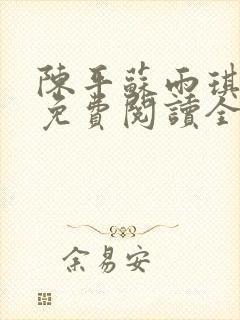 陳平蘇雨琪
免費閱讀全
余易安